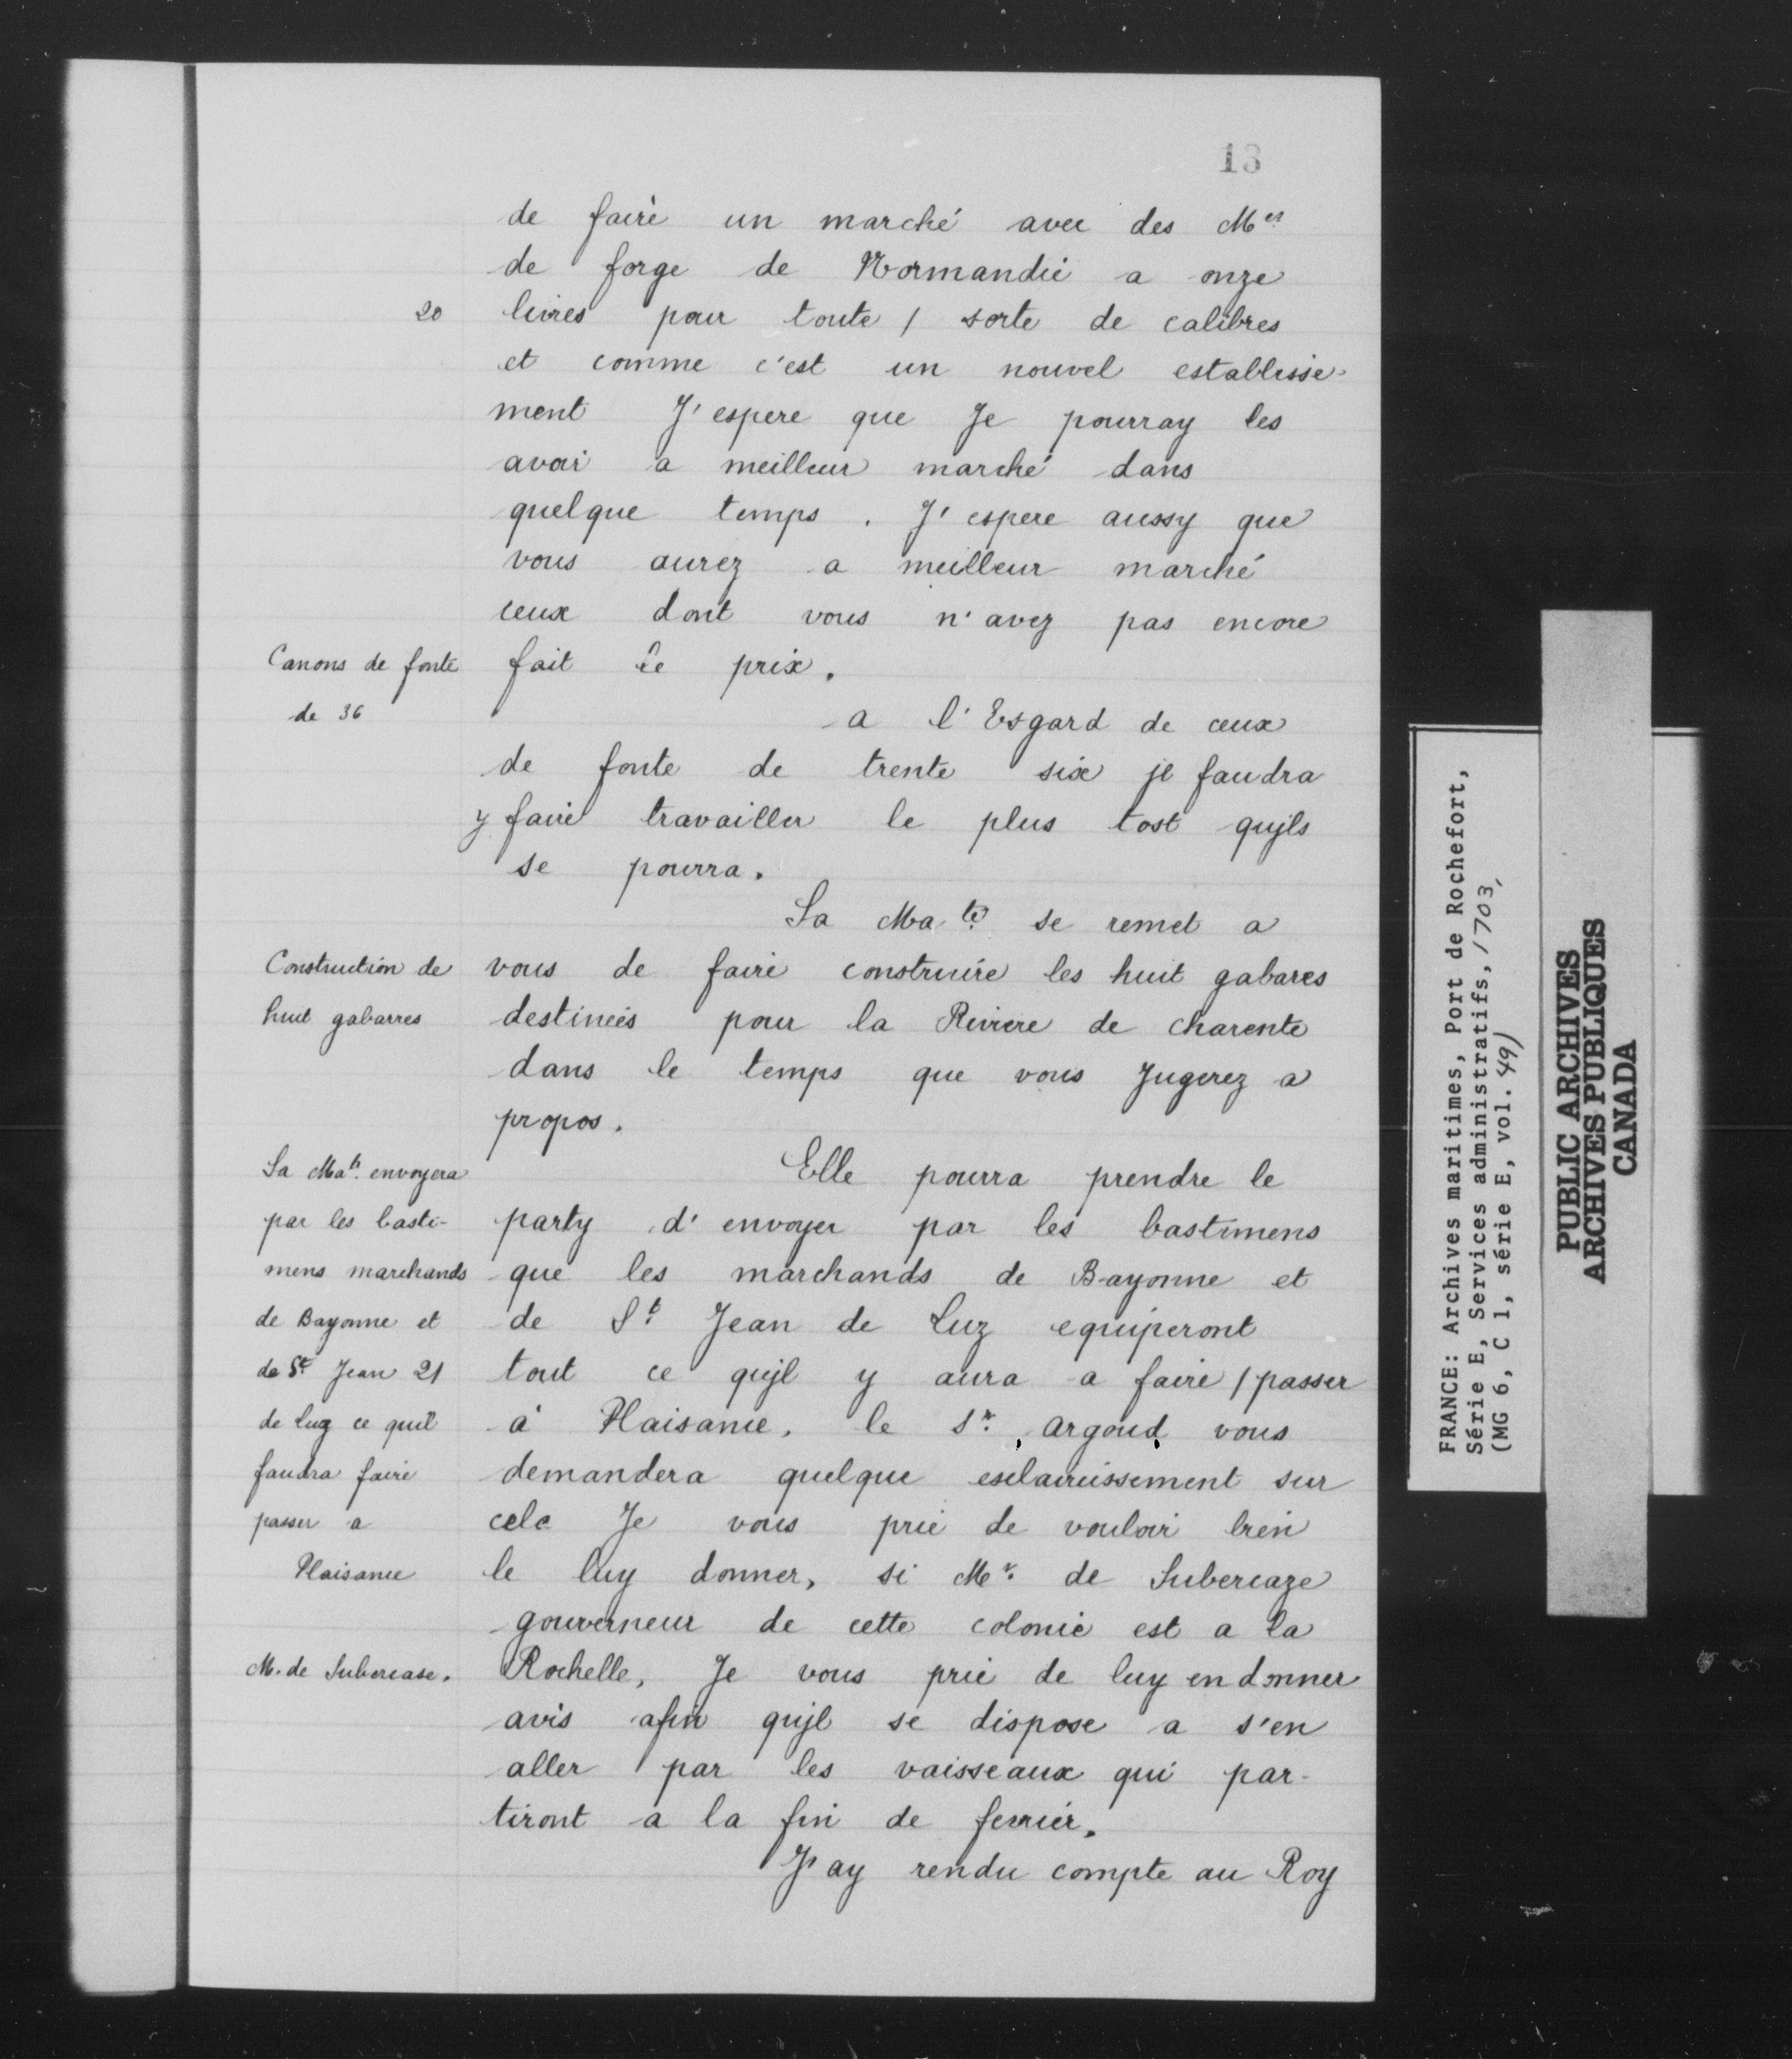 13
de faire un marché avec des Mes
de forge de Normandie a onze
20 livres pour toute / sorte de calibres
et comme c'est un nouvel establisse-
ment J'espere que Je pourray les
avoir a meilleur marché dans
quelque temps. J'espere aussy que
vous aurez a meilleur marché
ceux dont vous n'avez pas encore
Canons de fonte fait le prix.
de 36 a l'Esgard de ceux
de fonte de trente six jl faudra
y faire travailler le plus tost qujls
se pourra.
Sa Ma.té se remet a
Construction de vous de faire construire les huit gabares
huit gabarres destinées pour la Riviere de charente
dans le temps que vous Jugerez a
propos.
Sa Maté. envoyera Elle pourra prendre le
par les basti- party d'envoyer par les bastimens
mens marchands que les marchands de Bayonne et
de Bayonne et de St. Jean de Luz equiperont
de St. Jean 21 tout ce qujl y aura a faire / passer
de luz ce quil à Plaisance, le Sr. argoud vous
faudra faire demandera quelque esclaircissement sur
passer a cela Je vous prie de vouloir bien
Plaisance le luy donner, si Mr. de Subercaze
gouverneur de cette colonie est a la
M. de Subercase. Rochelle, Je vous prie de luy en donner
avis afin qujl se dispose a s'en
aller par les vaisseaux qui par-
tiront a la fin de fevrier.
J'ay rendu compte au Roy
FRANCE: Archives maritimes, Port de Rochefort,
Série E, Services administratifs, 1703,
(MG 6, C 1, série E, vol. 49)
PUBLIC ARCHIVES
ARCHIVES PUBLIQUES
CANADA